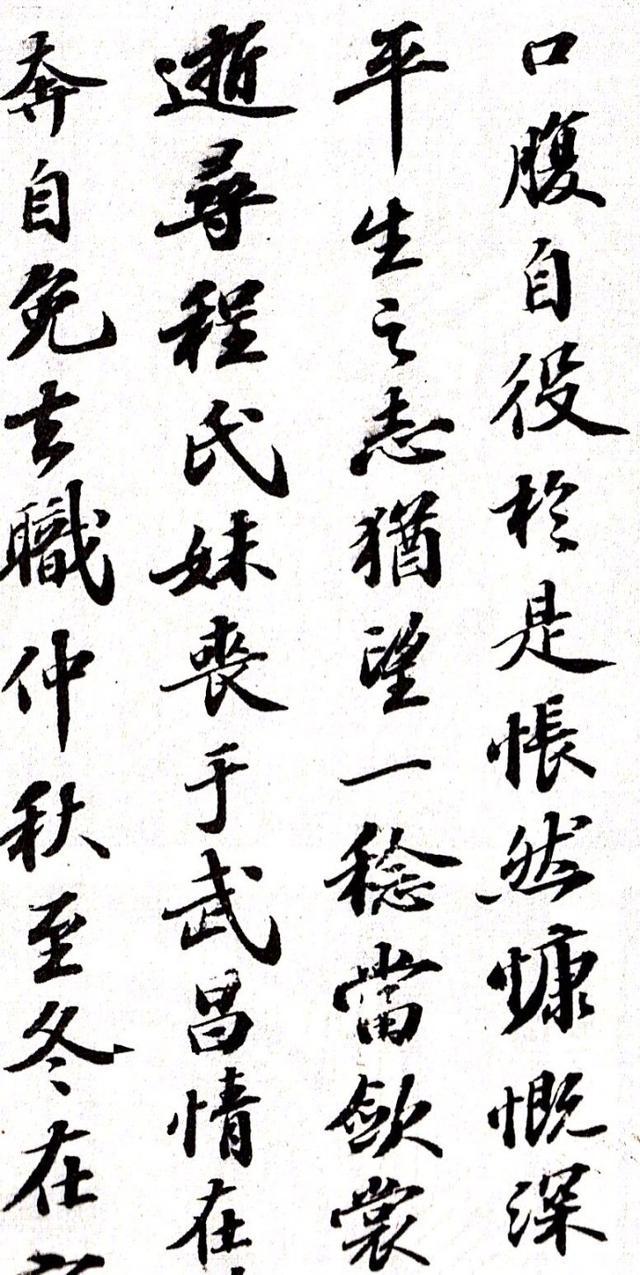 口腹自役於是悵然慷慨深
平生之志猶望一稔當歛裳
逝尋程氏妹喪于武昌情在
奔自免去職仲秋至冬在